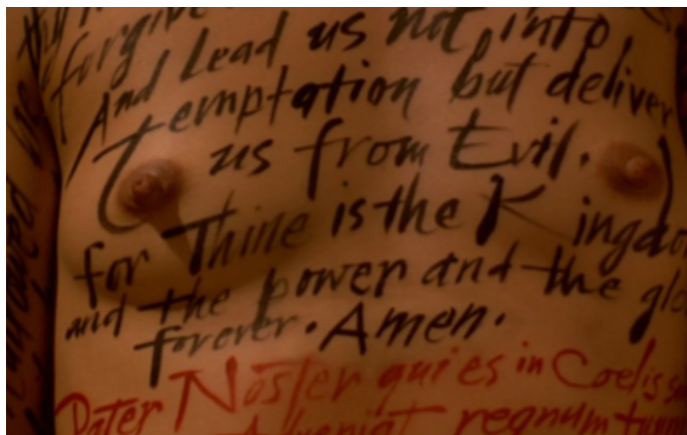 forgive
And Lead us not into
Temptation but deliver
us from Evil.
for Thine is the Kingdo
and the power and the glo
forever. Amen.
Pater Noster qui es in Coelis
Adveniat regnum tuum